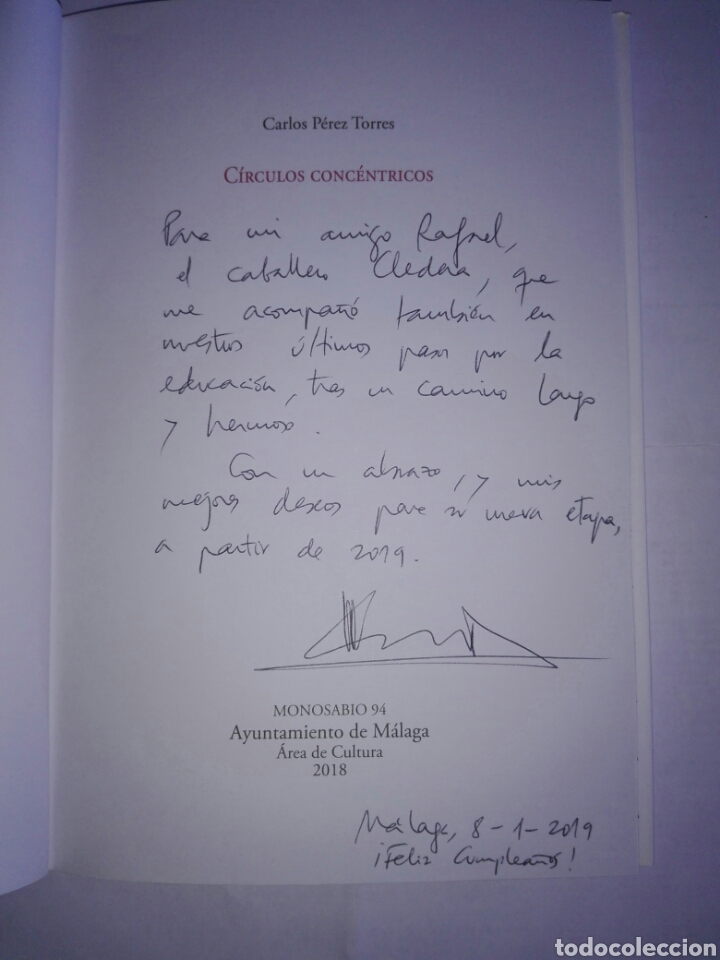 Carlos Pérez Torres
CÍRCULOS CONCÉNTRICOS
Para mi amigo Rafael,
el caballero, que
me acompañó también en
nuestros últimos pasos por la
educación, tras un camino largo
y hermoso.
Con un abrazo, y mis
mejores deseos para su nueva etapa,
a partir de 2019.
MONOSABIO 94
Ayuntamiento de Málaga
Área de Cultura
2018
Málaga, 8-1-2019
¡Feliz Cumpleaños!
todocoleccion